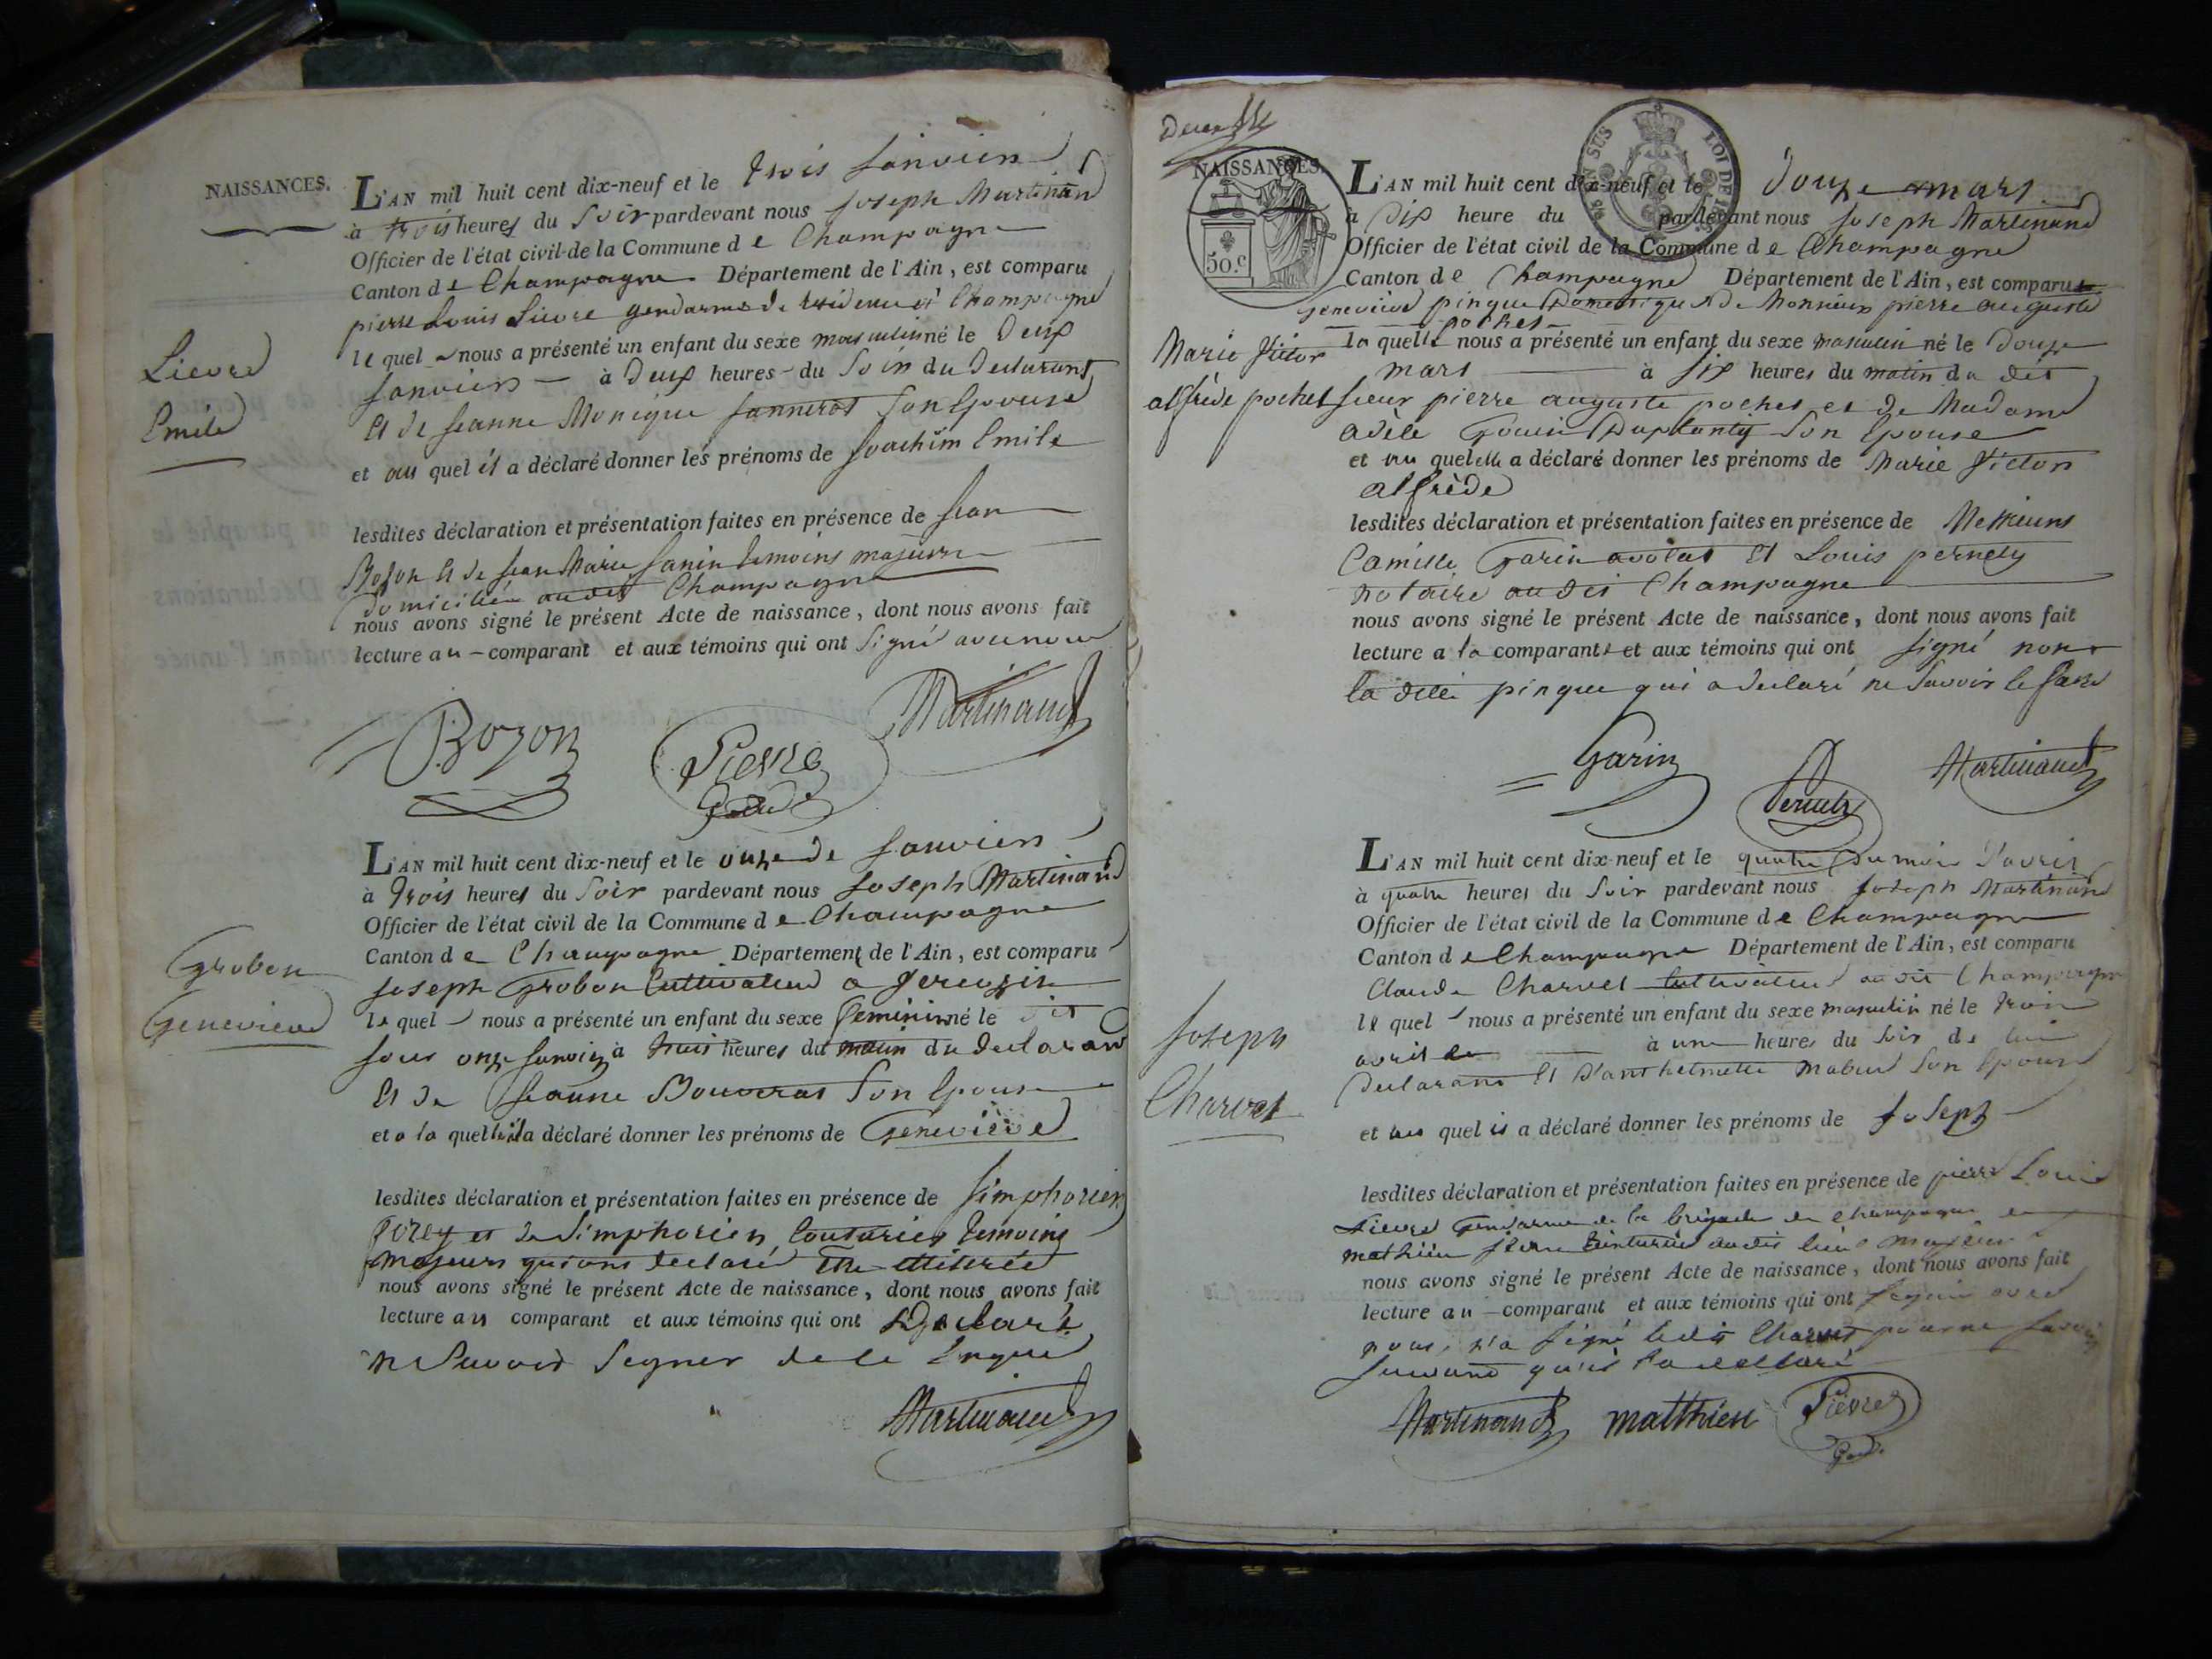 NAISSANCES.
L'AN mil huit cent dix-neuf et le trois janvier
à trois heures du soir pardevant nous joseph Martinand
Officier de l'état civil de la Commune de Champagne
Canton de Champagne Département de l'Ain, est comparu
pierre Louis Lievre gendarme de residence à Champagne
lequel nous a présenté un enfant du sexe masculin né le deux
janvier à deux heures du soir du declarant
Lievre
Emile
et de jeanne Monique janneret son Epouse
et au quel il a déclaré donner les prénoms de joachim Emile
lesdites déclaration et présentation faites en présence de jean
Bozon et de jean Marie janin temoins majeurs
domiciliés audit Champagne
nous avons signé le présent Acte de naissance, dont nous avons fait
lecture au comparant et aux témoins qui ont signé avec nous
Bozon Lievre Martinand
L'AN mil huit cent dix-neuf et le onze de janvier
à trois heures du soir pardevant nous joseph Martinand
Officier de l'état civil de la Commune de Champagne
Canton de Champagne Département de l'Ain, est comparu
Grobon
Genevieve
joseph Grobon Cultivateur a
lequel nous a présenté un enfant du sexe feminin né le dit
jour onze janvier à trois heures du matin du declarant
Et de jeanne Bouverat son Epouse
et a la quelle il a déclaré donner les prénoms de Genevieve
lesdites déclaration et présentation faites en présence de simphorien
et de simphorien Couturier temoins
majeurs qui ont declaré être
nous avons signé le présent Acte de naissance, dont nous avons fait
lecture au comparant et aux témoins qui ont declaré
ne savoir segner de ce
Martinand
NAISSANCES.
50.c
LOI DE
L'AN mil huit cent dix-neuf et le douze mars
à dix heure du pardevant nous joseph Martinand
Officier de l'état civil de la Commune de Champagne
Canton de Champagne Département de l'Ain, est comparue
genevieve pingue domestique de Monsieur pierre auguste
pochet
la quelle nous a présenté un enfant du sexe masculin né le douze
Marie Victor
alfrède pochet
mars à six heures du matin du dit
sieur pierre auguste pochet et de Madame
adèle son Epouse
et au quel elle a déclaré donner les prénoms de Marie Victor
alfrède
lesdites déclaration et présentation faites en présence de Messieurs
Camille Garin avocat et Louis pernety
notaire audit Champagne
nous avons signé le présent Acte de naissance, dont nous avons fait
lecture a la comparante et aux témoins qui ont signé non
la dite pingue qui a declaré ne savoir le faire
Garin Martinand
L'AN mil huit cent dix-neuf et le quatre du mois d'avril
à quatre heures du soir pardevant nous joseph Martinand
Officier de l'état civil de la Commune de Champagne
Canton de Champagne Département de l'Ain, est comparu
Claude Charvet cultivateur au dit Champagne
lequel nous a présenté un enfant du sexe masculin né le trois
joseph
Charvet
avril à une heures du soir de lui
declarant et d'anthelmette son Epouse
et au quel il a déclaré donner les prénoms de joseph
lesdites déclaration et présentation faites en présence de pierre Louis
Lievre gendarme de la brigade de champagne et
mathieu audit lieu majeurs
nous avons signé le présent Acte de naissance, dont nous avons fait
lecture au comparant et aux témoins qui ont avec
nous, n'a signé ledit Charvet pour ne savoir
suivant qu'il l'a declaré
Martinand matthieu Lievre